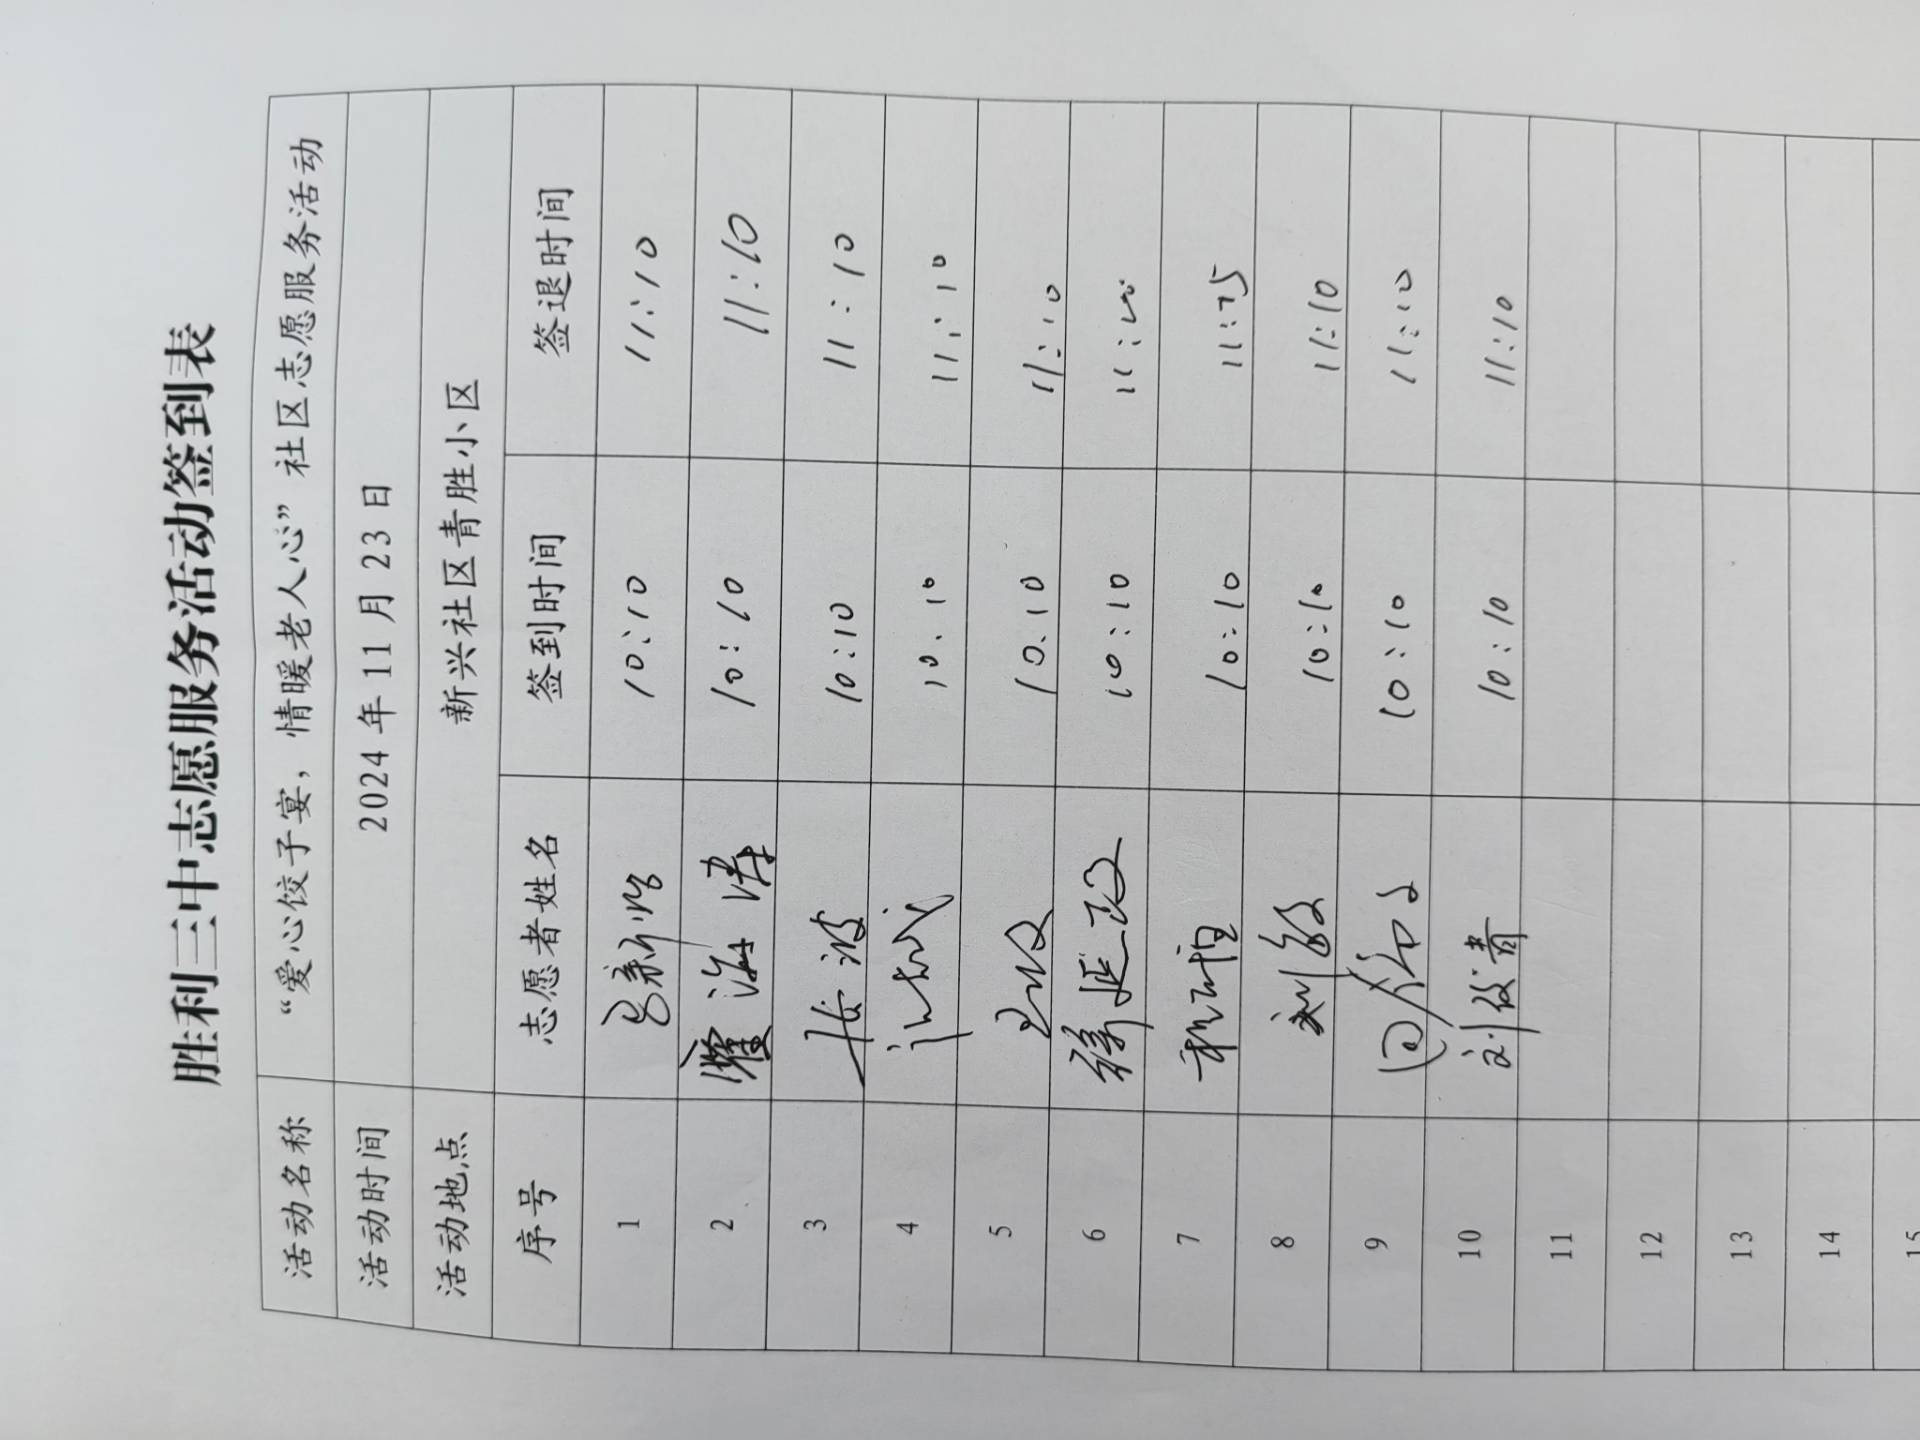 胜利三中志愿服务活动签到表
活动名称 “爱心饺子宴，情暖老人心”社区志愿服务活动
活动时间 2024年11月23日
活动地点 新兴社区青胜小区
序号 志愿者姓名 签到时间 签退时间
1 10:10 11:10
2 10:10 11:10
3 张波 10:10 11:10
4 10.10 11:10
5 10.10 11:10
6 10:10 11:
7 10:10
8 刘敏 10:10 11:10
9 10:10 11:10
10 刘俊青 10:10 11:10
11
12
13
14
15